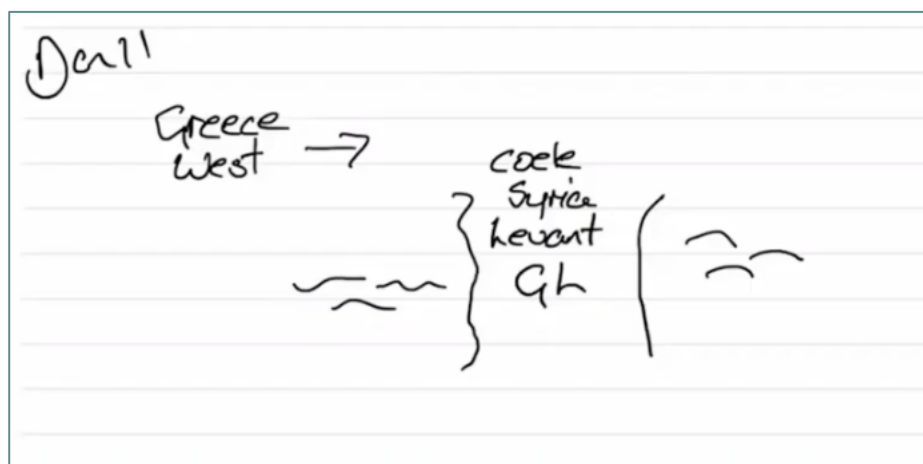 Dan 11
Greece
West →
Coele
Syria
Levant
GL